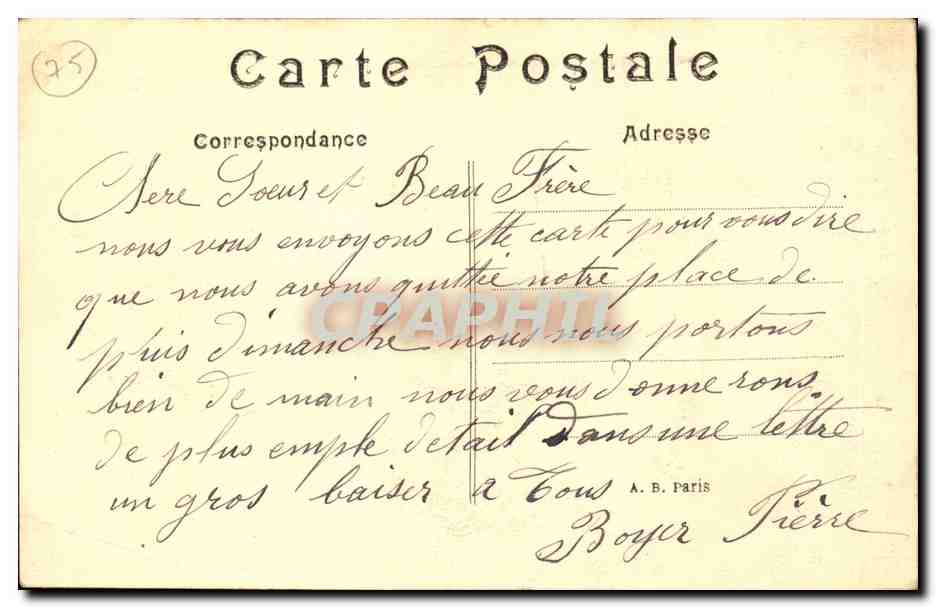 75
Carte Postale
Correspondance
Adresse
Chere Soeur et Beau Frère
nous vous envoyons cette carte pour vous dire
que nous avons quittée notre place de
puis dimanche nous nous portons
bien de main nous vous donnerons
de plus emple detail dans une lettre
un gros baiser a Tous
A. B. Paris
Boyer Pierre
CPAPHIL